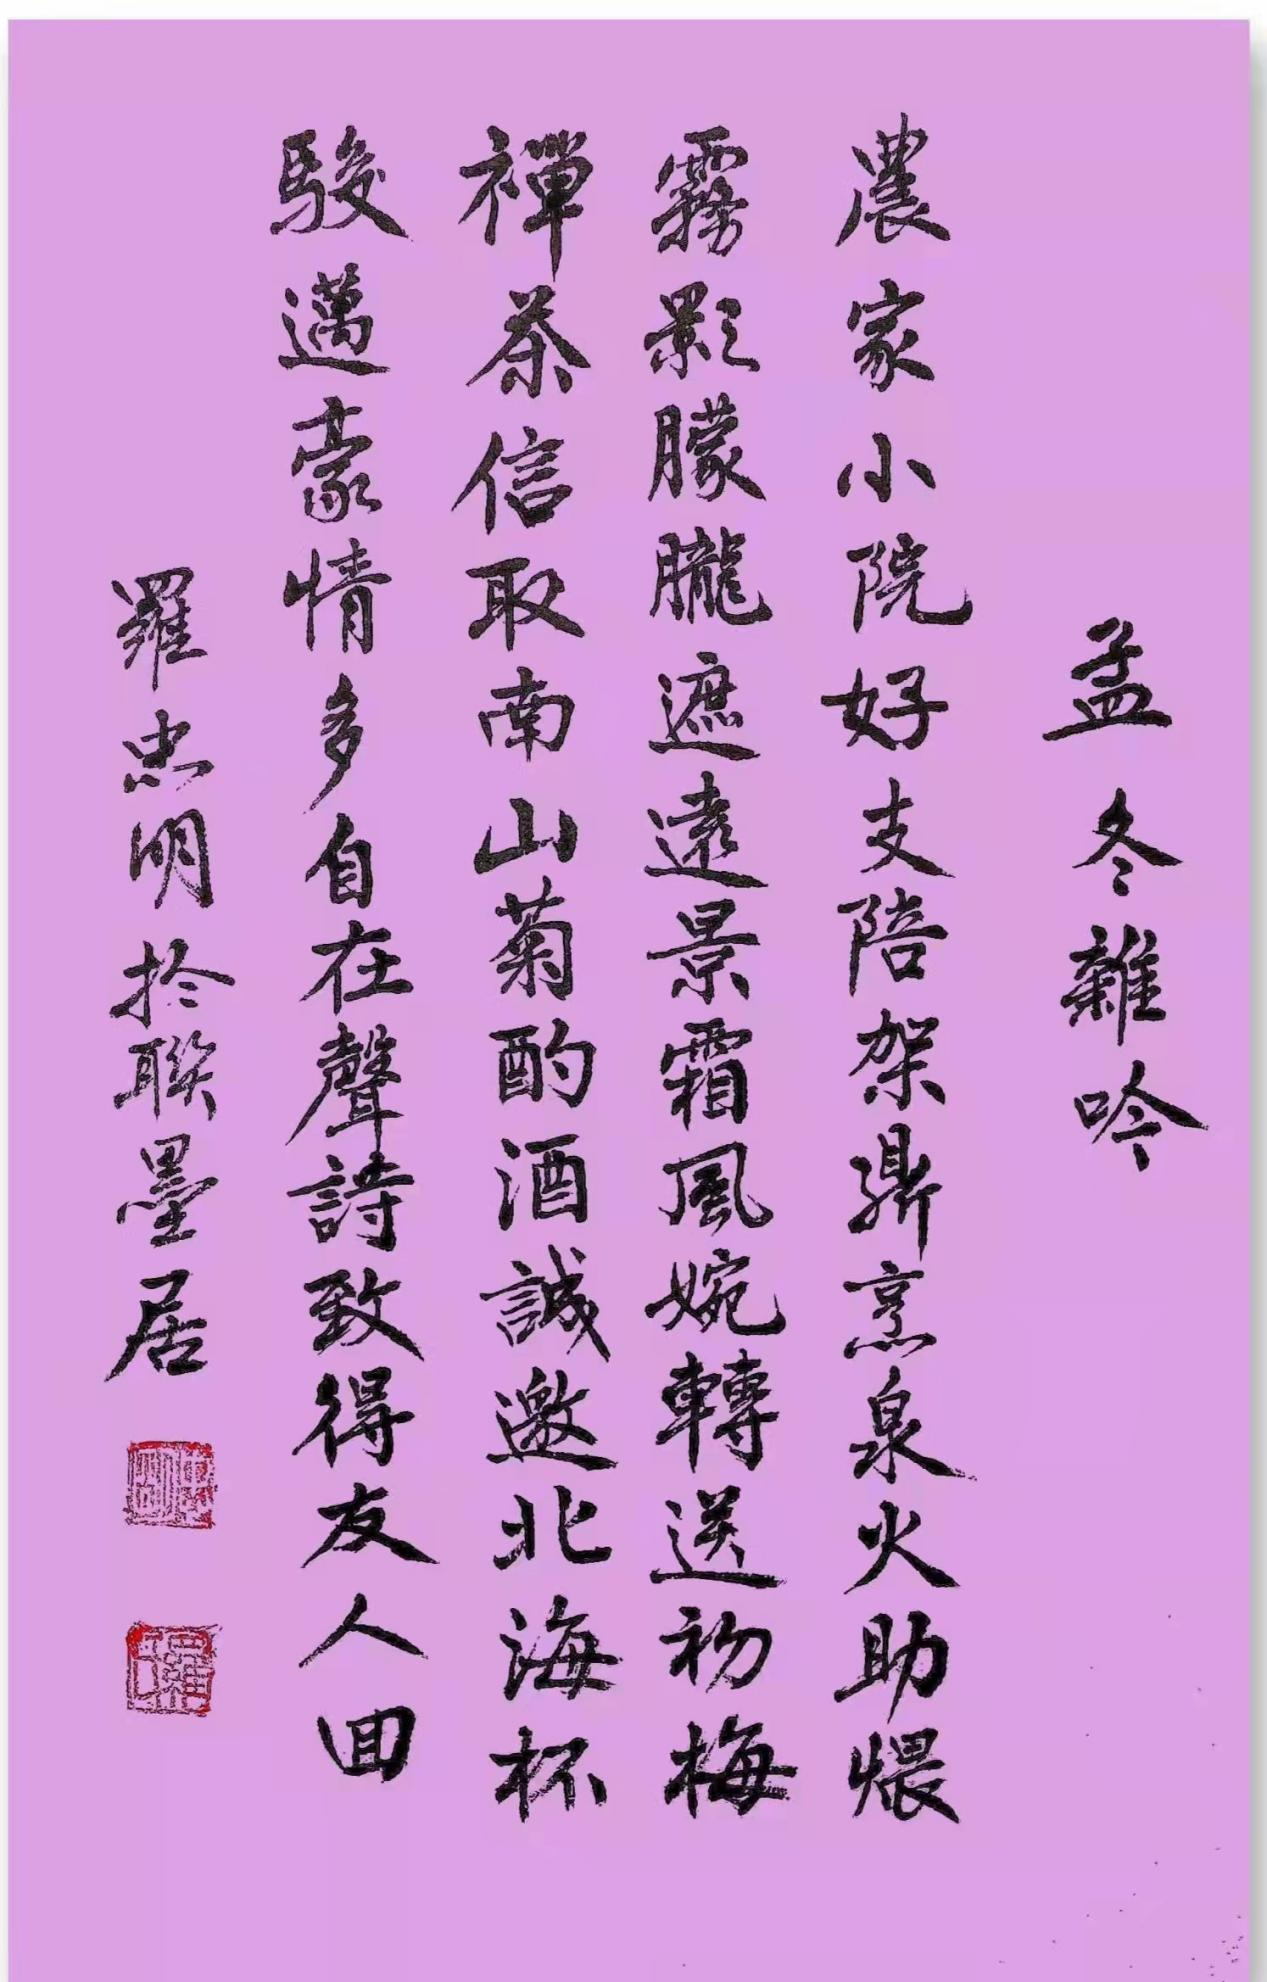 孟冬雜吟
農家小院好支陪架鼎烹泉火助煨
霧影朦朧遮遠景霜風婉轉送初梅
禪茶信取南山菊酌酒誠邀北海杯
駿邁豪情多自在聲詩致得友人囬
羅忠明於聯墨居